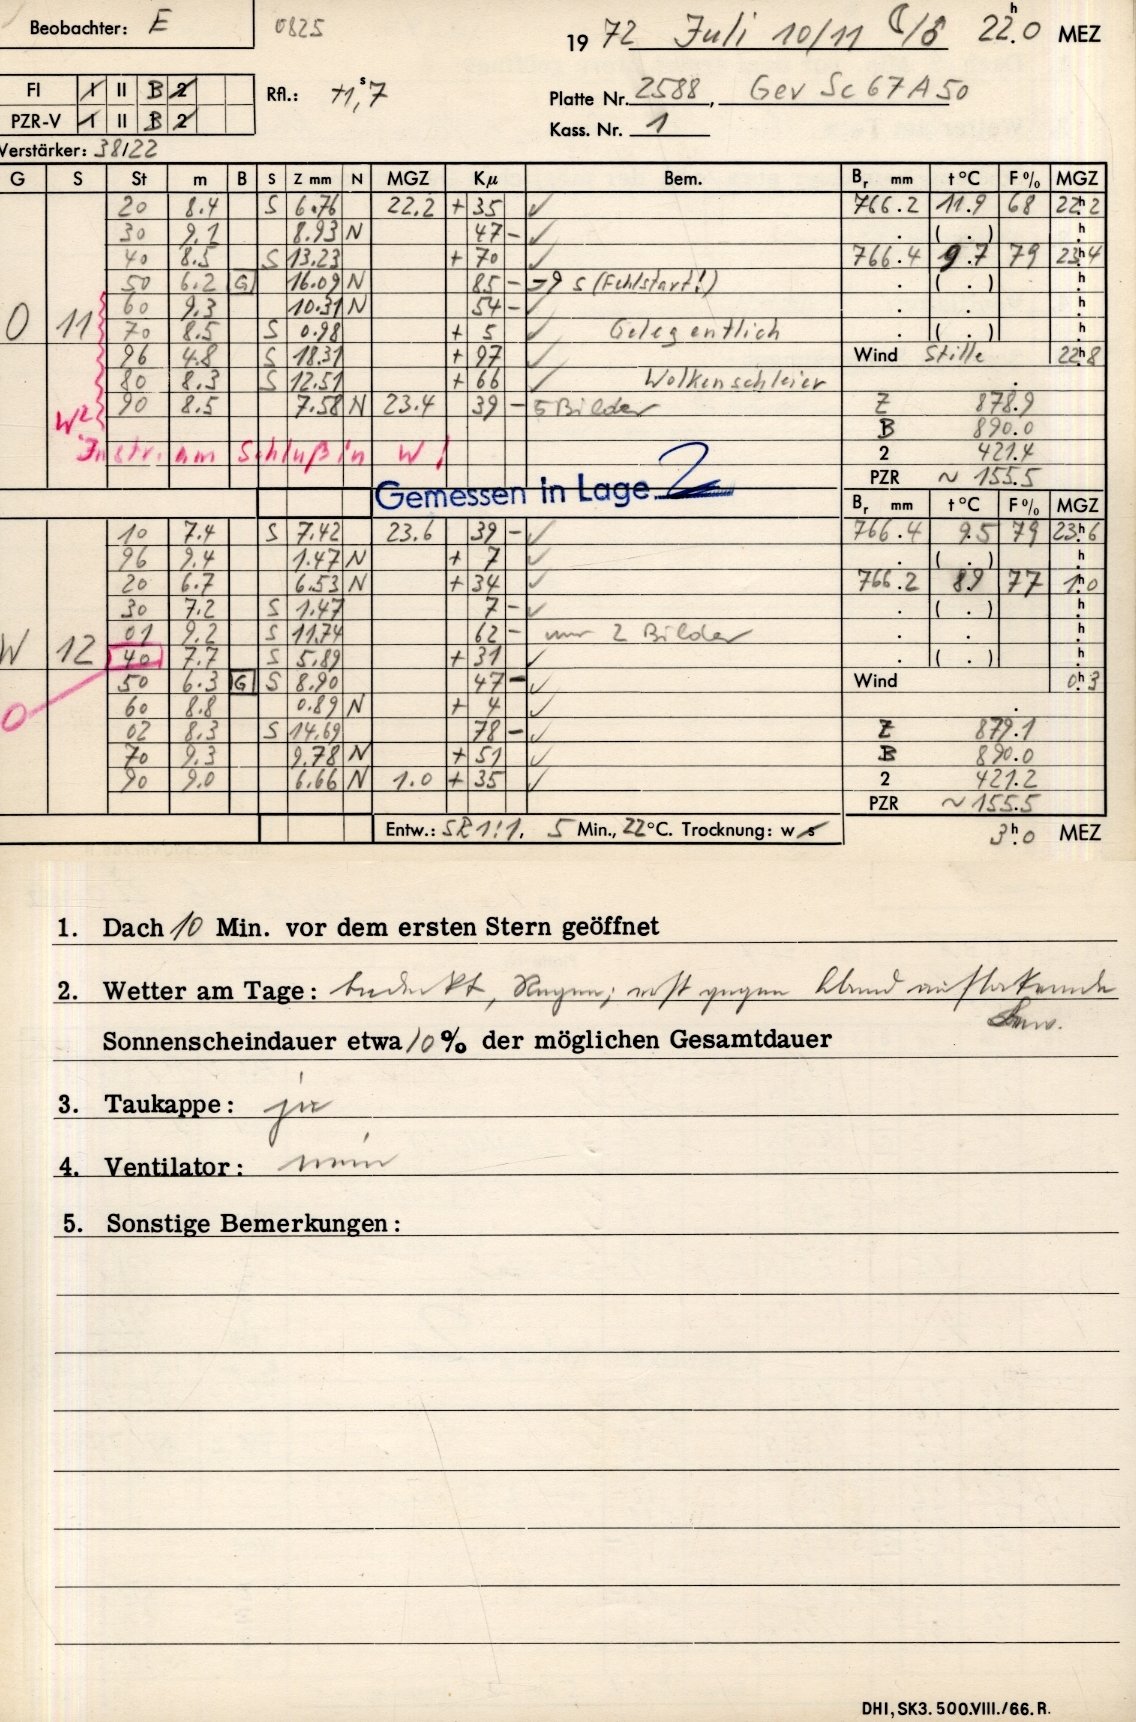 Beobachter: E 0825
19 72 Juli 10/11 22h.0 MEZ
FI 1 II B 2 Rfl.: +1,s7
Platte Nr. 2588, Gev Sc 67 A 50
PZR-V 1 II B 2
Kass. Nr. 1
Verstärker: 38/22
G S St m B S Z mm N MGZ Kμ Bem. Br mm t °C F % MGZ
20 8.4 S 6.76 22.2 + 35 ✓ 766.2 11.9 68 22h.2
30 9.1 8.93 N 47 - ✓ . ( . ) h.
40 8.5 S 13.23 + 70 ✓ 766.4 9.7 79 23h.4
50 6.2 G 16.09 N 85 - -9 s (Fehlstart!) . ( . ) h.
60 9.3 10.31 N 54 - ✓ . . h.
O 11 70 8.5 S 0.98 + 5 ✓ Gelegentlich . ( . ) h.
96 4.8 S 18.31 + 97 ✓ Wind Stille 22h.8
80 8.3 S 12.51 + 66 ✓ Wolkenschleier .
90 8.5 7.58 N 23.4 39 - 5 Bilder Z 878.9
W2 B 890.0
Instr. am Schluß in W! 2 421.4
PZR ~ 155.5
Gemessen in Lage 2
Br mm t °C F % MGZ
10 7.4 S 7.42 23.6 39 - ✓ 766.4 9.5 79 23h.6
96 9.4 1.47 N + 7 ✓ . ( . ) h.
20 6.7 6.53 N + 34 ✓ 766.2 8.9 77 1h.0
30 7.2 S 1.47 7 - ✓ . ( . ) h.
01 9.2 S 11.74 62 - nur 2 Bilder . . h.
W 12 40 7.7 S 5.89 + 31 ✓ . ( . ) h.
50 6.3 G S 8.90 47 - ✓ Wind 0h.3
O 60 8.8 0.89 N + 4 ✓ .
02 8.3 S 14.69 78 - ✓ Z 879.1
70 9.3 9.78 N + 51 ✓ B 890.0
90 9.0 6.66 N 1.0 + 35 ✓ 2 421.2
PZR ~ 155.5
Entw.: SR 1:1, 5 Min., 22 °C. Trocknung: w s 3h.0 MEZ
1. Dach 10 Min. vor dem ersten Stern geöffnet
2. Wetter am Tage: bedeckt, Regen; erst gegen Abend auflockernde
Bew.
Sonnenscheindauer etwa 10 % der möglichen Gesamtdauer
3. Taukappe: ja
4. Ventilator: nein
5. Sonstige Bemerkungen:
DHI, SK3. 500.VIII./66. R.